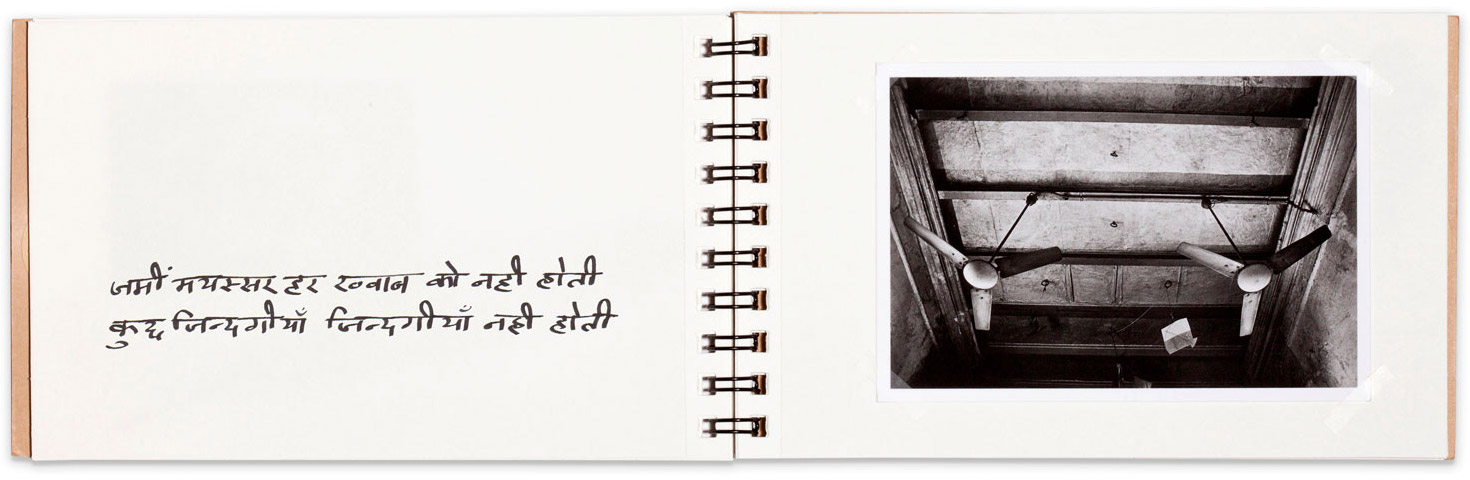 जमीं मयस्सर हर ख्वाब को नही होती
कुछ जिन्दगीयाँ जिन्दगीयाँ नही होती